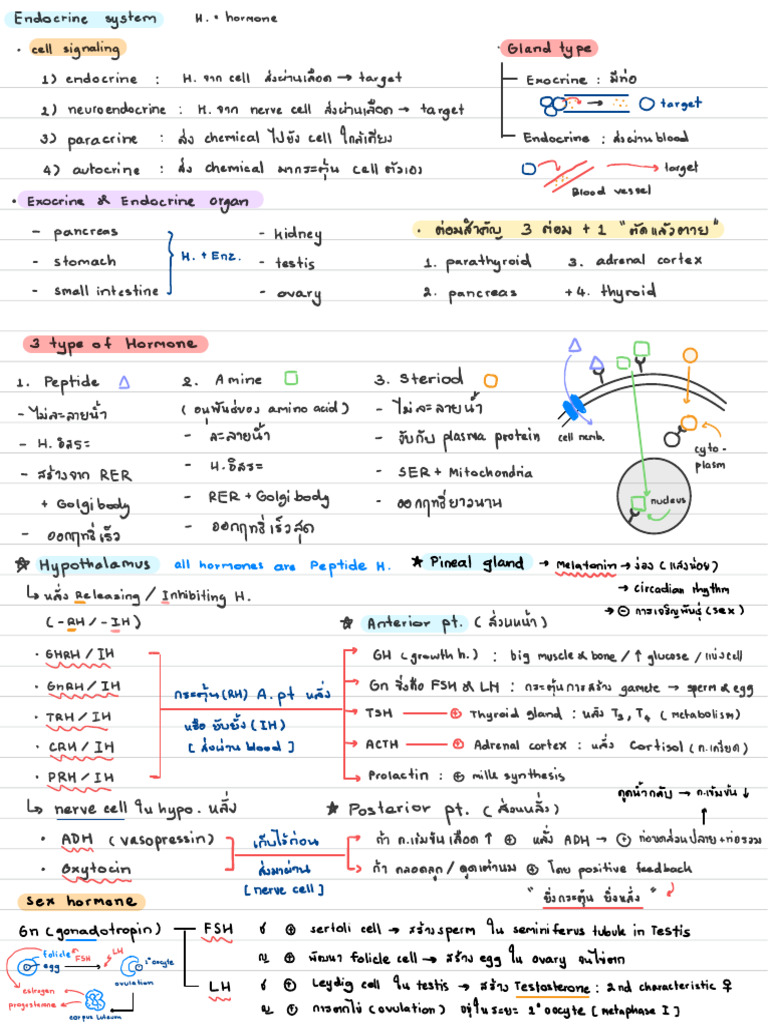 Endocrine system H. = hormone
• cell signaling
1) endocrine : H. จาก cell ส่งผ่านเลือด → target
2) neuroendocrine : H. จาก nerve cell ส่งผ่านเลือด → target
3) paracrine : ส่ง chemical ไปยัง cell ใกล้เคียง
4) autocrine : สั่ง chemical มากระตุ้น cell ตัวเอง
• Gland type
Exocrine : มีท่อ
→ target
Endocrine : ส่งผ่าน blood
→ target
Blood vessel
• Exocrine & Endocrine organ
- pancreas
- stomach
- small intestine
H. + Enz.
- kidney
- testis
- ovary
• ต่อมสำคัญ 3 ต่อม + 1 "ตัดแล้วตาย"
1. parathyroid 3. adrenal cortex
2. pancreas +4. thyroid
3 type of Hormone
1. Peptide
- ไม่ละลายน้ำ
- H. อิสระ
- สร้างจาก RER
+ Golgi body
- ออกฤทธิ์เร็ว
2. Amine
(อนุพันธ์ของ amino acid)
- ละลายน้ำ
- H. อิสระ
- RER + Golgi body
- ออกฤทธิ์เร็วสุด
3. Steriod
- ไม่ละลายน้ำ
- จับกับ plasma protein
- SER + Mitochondria
- ออกฤทธิ์ยาวนาน
cell memb.
cyto-
plasm
nucleus
☆ Hypothalamus all hormones are Peptide H.
↳ หลั่ง Releasing / Inhibiting H.
(-RH / -IH)
• GHRH / IH
• GnRH / IH
• TRH / IH
• CRH / IH
• PRH / IH
กระตุ้น (RH) A. pt หลั่ง
หรือ ยับยั้ง (IH)
[ส่งผ่าน blood]
★ Pineal gland → Melatonin → ง่วง (แสงน้อย)
→ circadian rhythm
→ ⊖ การเจริญพันธุ์ (sex)
☆ Anterior pt. (ส่วนหน้า)
GH (growth h.) : big muscle & bone / ↑ glucose / แบ่งcell
Gn ซึ่งคือ FSH & LH : กระตุ้นการสร้าง gamete → sperm & egg
TSH ⊕ Thyroid gland : หลั่ง T3, T4 (metabolism)
ACTH ⊕ Adrenal cortex : หลั่ง Cortisol (ค.เครียด)
Prolactin : ⊕ milk synthesis
↳ nerve cell ใน hypo. หลั่ง
• ADH (vasopressin)
• Oxytocin
เก็บไว้ก่อน
ส่งมาผ่าน
[nerve cell]
★ Posterior pt. (ส่วนหลัง)
ดูดน้ำกลับ → ค.เข้มข้น ↓
ถ้า ค.เข้มข้นเลือด ↑ ⊕ หลั่ง ADH → ⊕ ท่อขดส่วนปลาย + ท่อรวม
ถ้า คลอดลูก / ดูดเต้านม ⊕ โดย positive feedback
"ยิ่งกระตุ้น ยิ่งหลั่ง"
Sex hormone
Gn (gonadotropin)
FSH ช ⊕ sertoli cell → สร้าง sperm ใน seminiferus tubule in Testis
ญ ⊕ พัฒนา folicle cell → สร้าง egg ใน ovary จนไข่ตก
LH ช ⊕ Leydig cell ใน testis → สร้าง Testosterone : 2nd characteristic ♀
ญ ⊕ การตกไข่ (ovulation) อยู่ในระยะ 2° oocyte [metaphase I]
folicle
egg
FSH
LH
2° oocyte
ovulation
estrogen
progesterone
corpus luteum